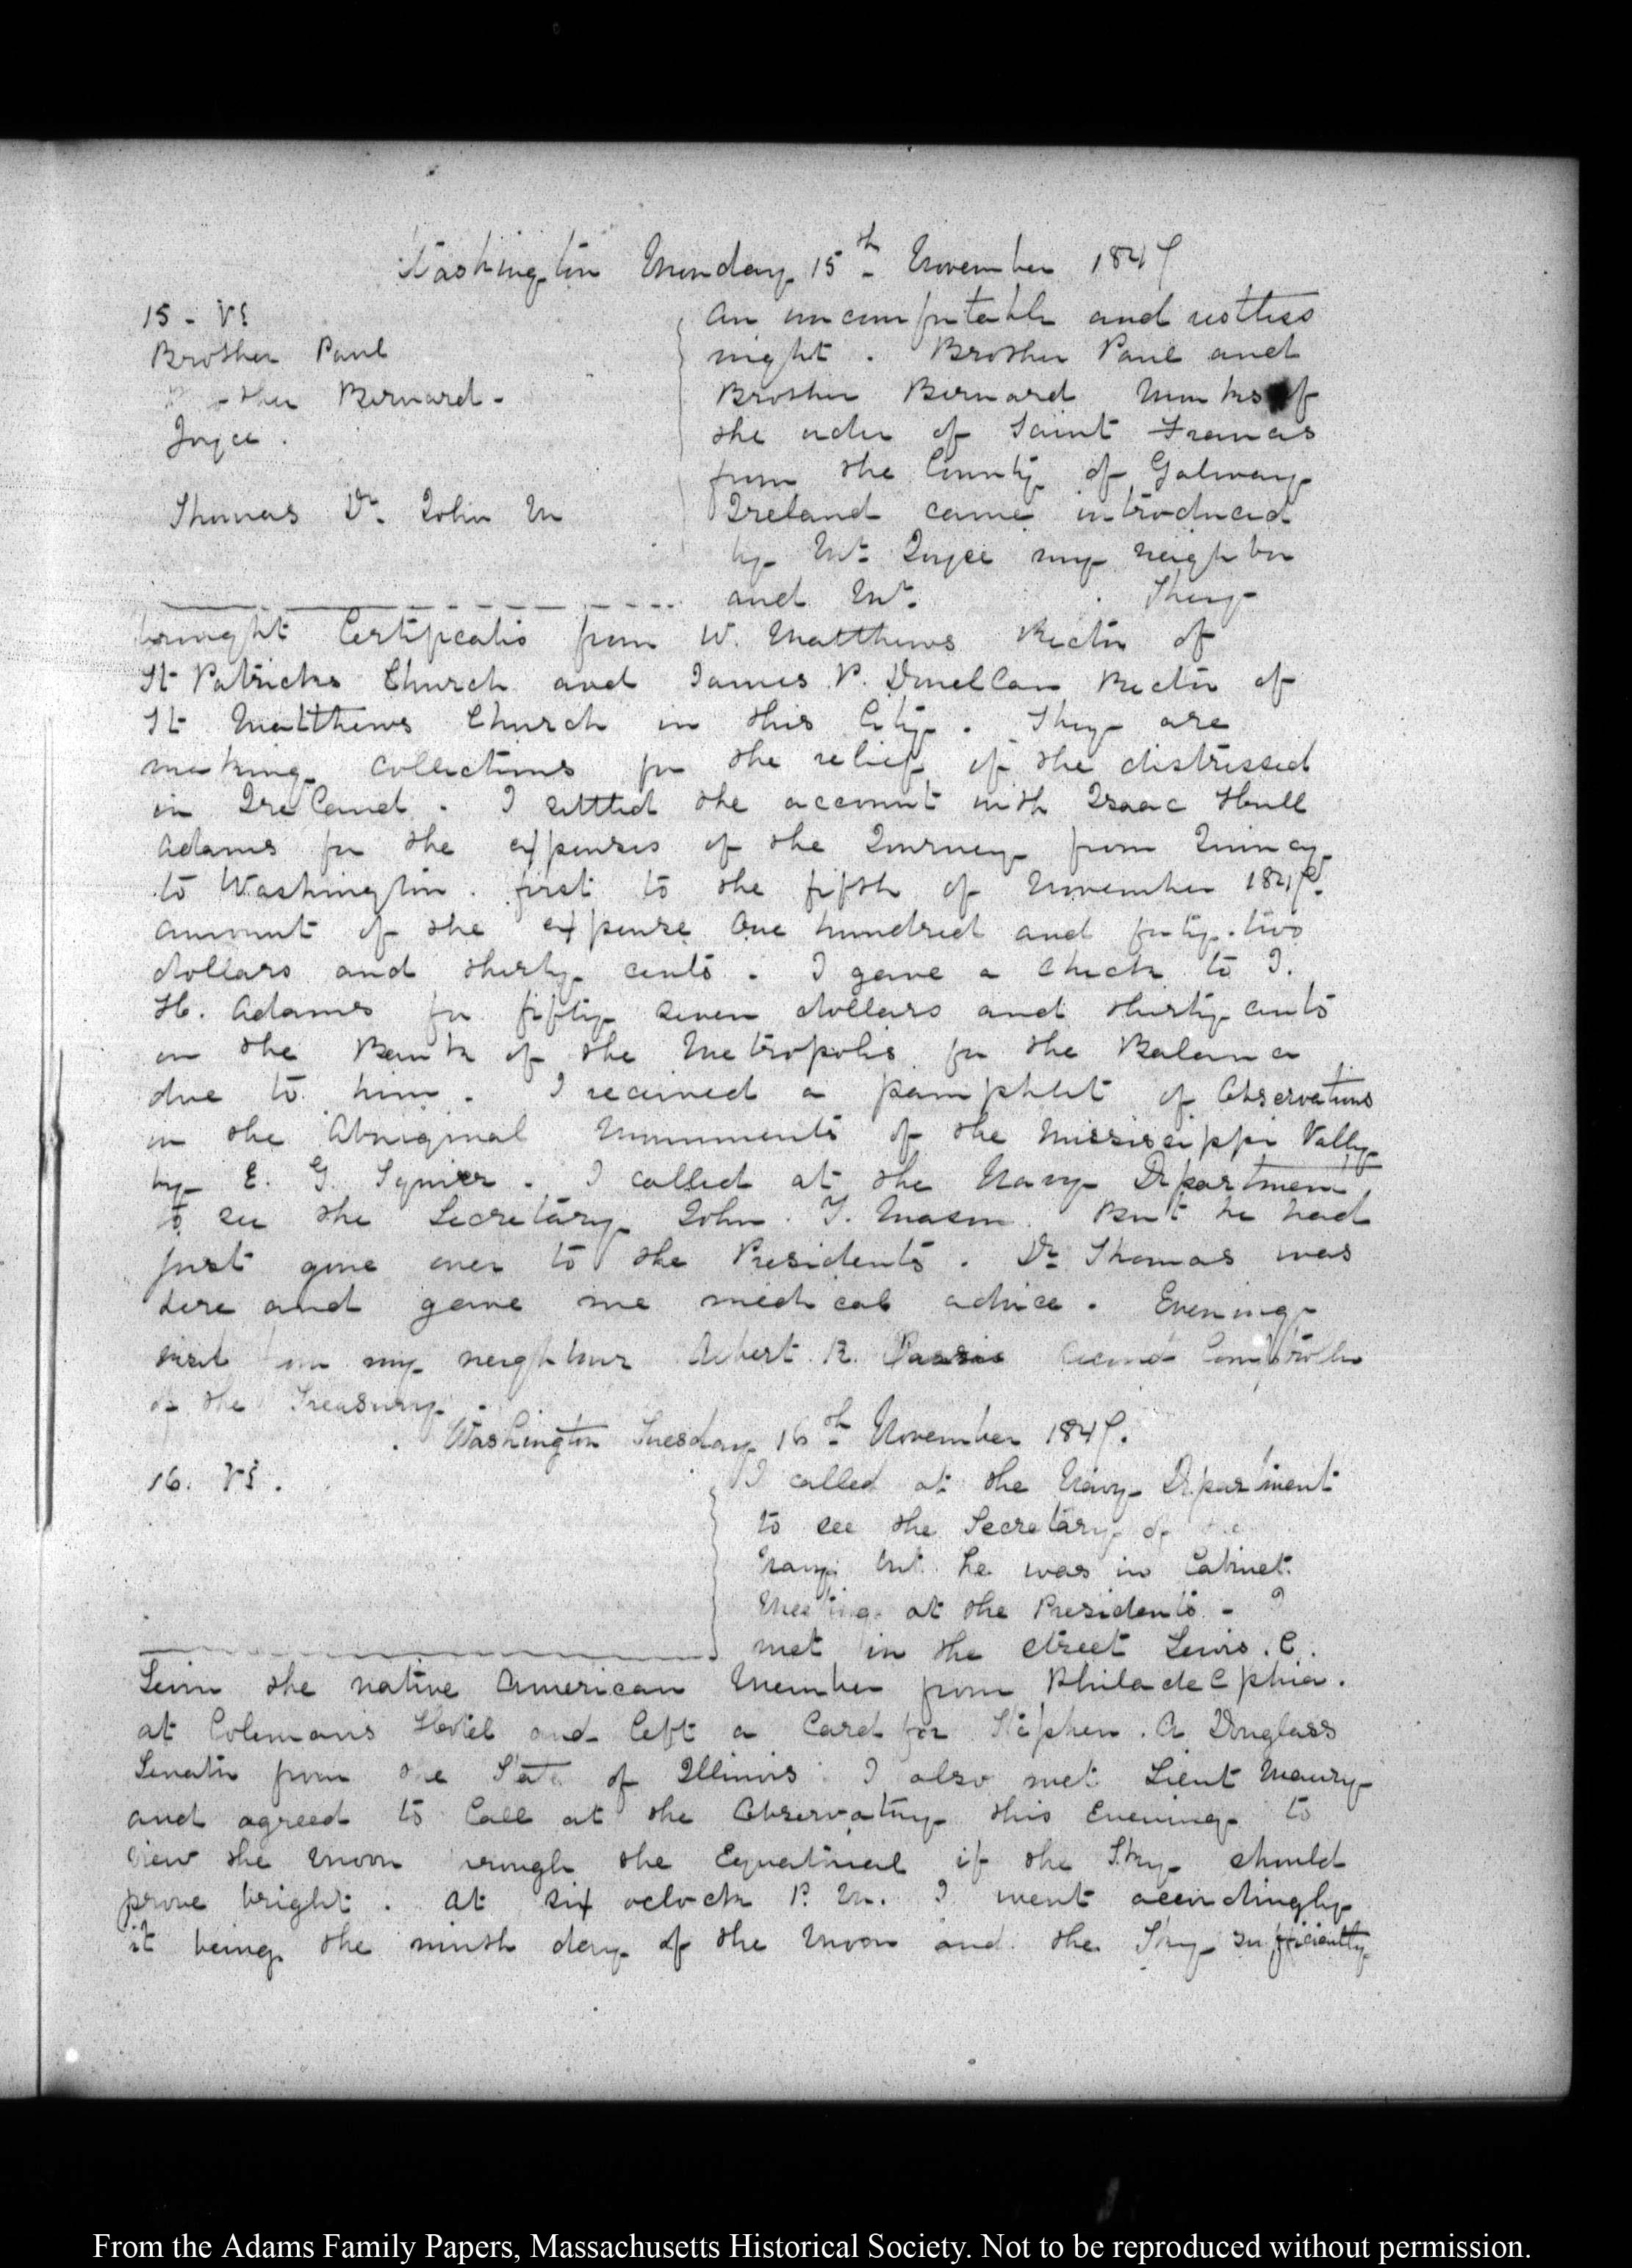 Washington Monday 15th November 1847
15 - VI
Brother Paul
Brother Bernard -
Joyce .
Thomas Dr. John M
An uncomfortable and restless
night . Brother Paul and
Brother Bernard Monks of
the order of Saint Francis
from the County of Galway
Ireland came introduced
by Mr. Joyce my neighbor
and Mr. . They
brought Certificates from W. Matthews Rector of
St Patricks Church and James P. Donellan Rector of
St Matthews Church in this City . They are
making collections for the relief of the distressed
in Ireland . I settled the account with Isaac Hull
Adams for the expenses of the Journey from Quincy
to Washington . first to the fifth of November 1847.
amount of the expense One hundred and forty-two
dollars and thirty cents . I gave a check to I.
H. Adams for fifty seven dollars and thirty cents
on the Bank of the Metropolis for the Balance
due to him . I received a pamphlet of Observations
on the Aboriginal Monuments of the Mississippi Vally
by E. G. Squier . I called at the Navy Department
to see the Secretary John . Y. Mason . But he had
just gone over to the Presidents . Dr Thomas was
here and gave me medical advice . Evening
visit from my neighbour Albert R. Parris Second Comptroller
of the Treasury .
Washington Tuesday 16th November 1847.
16. VI .
I called at the Navy Department
to see the Secretary of the
Navy but he was in Cabinet
Meeting at the Presidents - I
met in the street Lewis . C .
Levin the native American Member from Philadelphia .
at Colemans Hotel and left a Card for Stephen . A Douglass
Senator from the State of Illinois I also met Lieut Maury
and agreed to Call at the Observatory this Evening to
view the Moon through the Equatorial if the Sky should
prove bright . At six oclock P. M. I went accordingly
it being the ninth day of the Moon and the Sky sufficiently
From the Adams Family Papers, Massachusetts Historical Society. Not to be reproduced without permission.